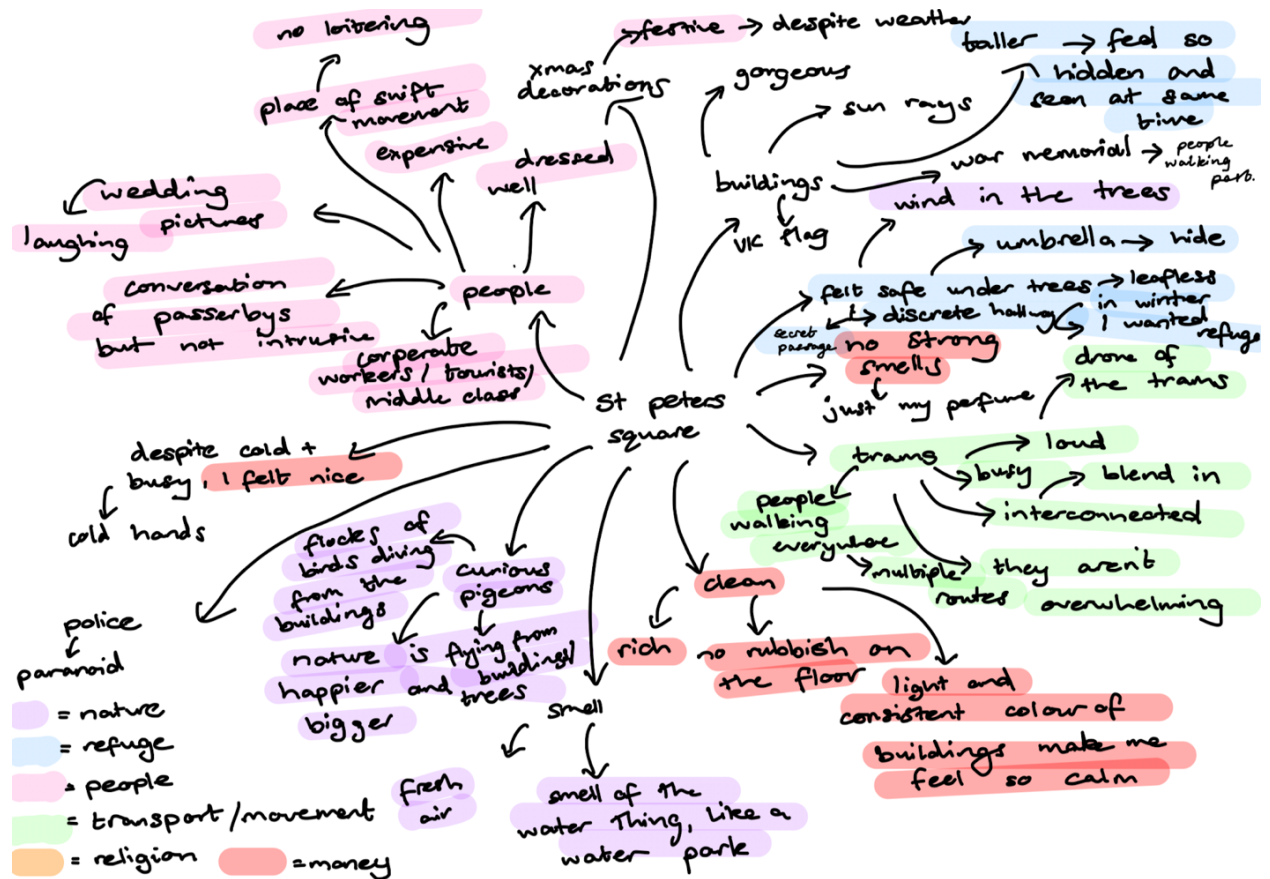 no loitering
place of swift
movement
expensive
dressed
well
wedding
pictures
laughing
conversation
of passerbys
but not intrusive
people
corperate
workers/tourists/
middle class
xmas
decorations
festive → despite weather
gorgeous
sun rays
taller → feel so
hidden and
seen at same
time
buildings
war memorial → people
walking
past.
VIC flag
wind in the trees
umbrella → hide
felt safe under trees → leafless
in winter
I wanted
refuge
discrete hallway
secret
passage
no strong
smells
just my perfume
St peters
square
drone of
the trams
trams
loud
busy
blend in
interconnected
people
walking
everywhere
multiple
routes
they aren't
overwhelming
despite cold +
busy, I felt nice
cold hands
police
paranoid
flocks of
birds diving
from the
buildings
curious
pigeons
is flying from
buildings/
trees
nature
happier and
bigger
clean
rich
no rubbish on
the floor
light and
consistent colour of
buildings make me
feel so calm
smell
fresh
air
smell of the
water thing, like a
water park
= nature
= refuge
= people
= transport/movement
= religion
= money